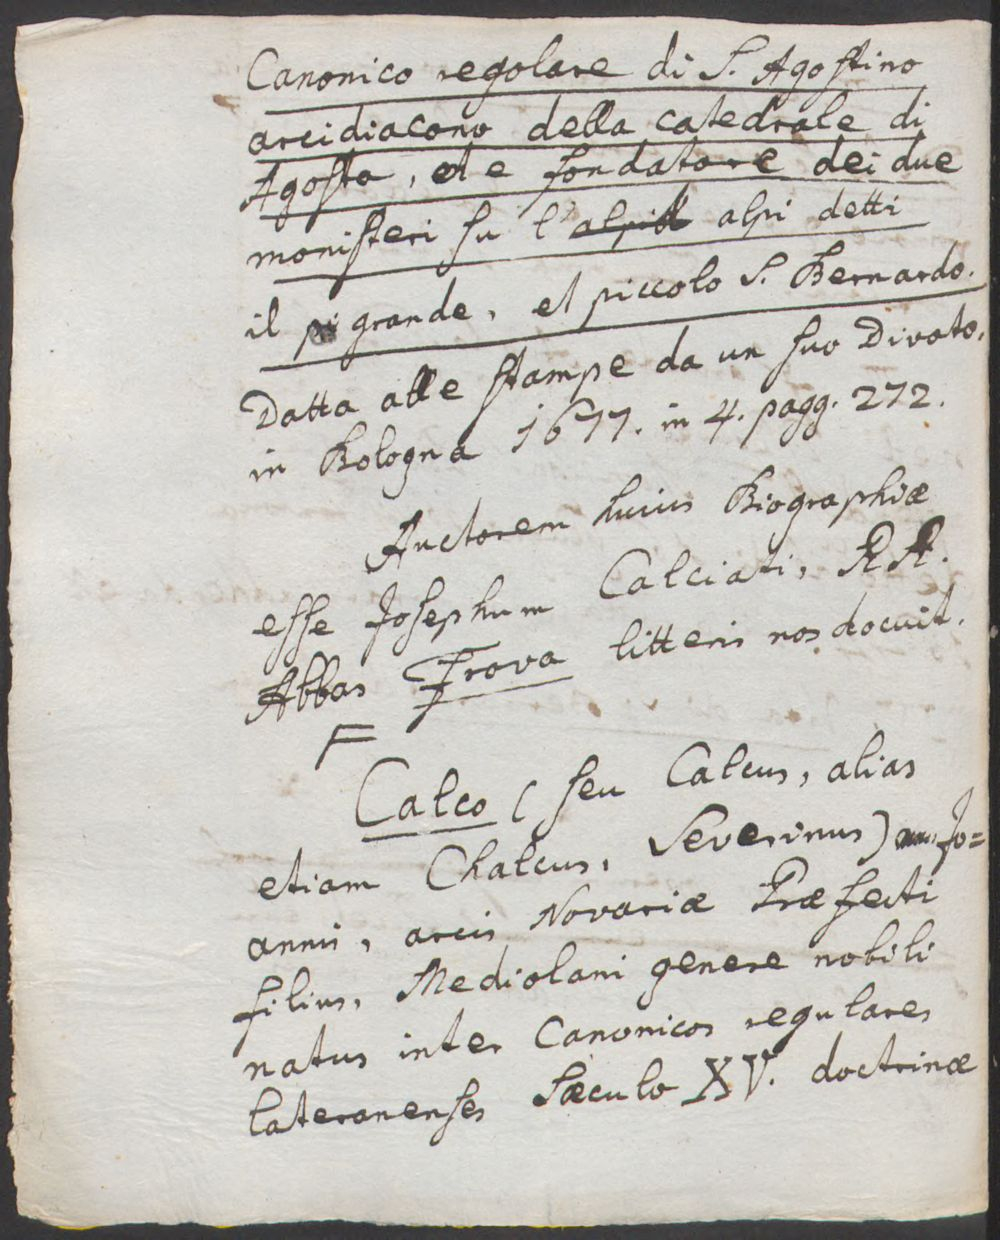 Canonico regolare di S. Agostino
arcidiacono della catedrale di
Agosta, et e fondatore dei due
monisteri su l' alpi detti
il grande, el piccolo S. Bernardo.
Datta alle stampe da un suo Divoto.
in Bologna 1677. in 4. pagg. 272.
Auctorem huius Biographiæ
esse Josephum Calciati, RR.
Abbas Frova litteris nos docuit.
F
Calco (seu Calcus, alias
etiam Chalcus, Severinus) Jo=
annis, arcis Novariæ Præfecti
filius, Mediolani genere nobili
natus inter Canonicos regulares
lateranenses Sæculo XV. doctrinæ